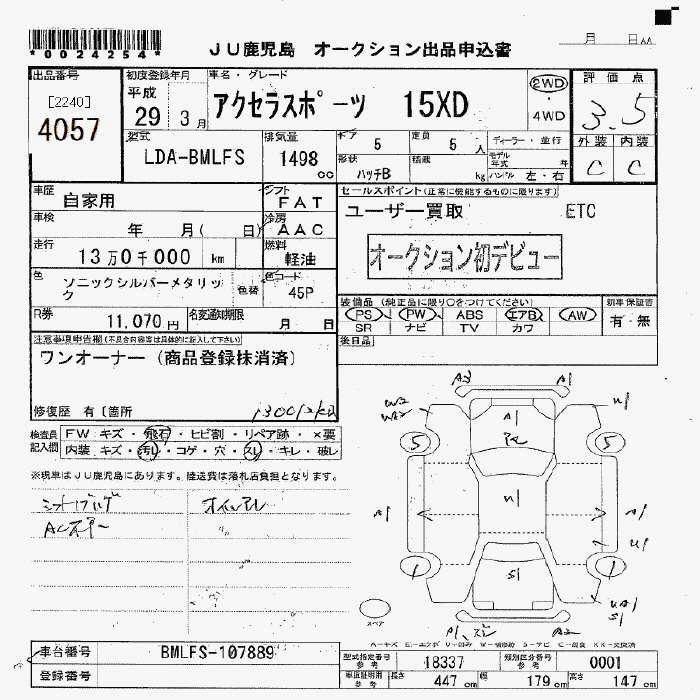 *0024254*
JU鹿児島 オークション出品申込書 月 日
出品番号 初度登録年月 車名・グレード 評価点
[2240] 平成 アクセラスポーツ 15XD 2WD
4057 29 3月 ・4WD 3.5
型式 排気量 ギア 5 定員 5人 ディーラー・並行 外装 内装
LDA-BMLFS 1498cc 形状 ハッチB 積載 kg モデル年式 年 ハンドル 左・右 C C
車歴 自家用 シフト FAT セールスポイント(正常に機能するものに限ります)
車検 年 月( 日) 冷房 AAC ユーザー買取 ETC
走行 13万0千000 km 燃料 軽油 オークション初デビュー
色 ソニックシルバーメタリック 色替 色コード 45P
装備品(純正品に限り○をつけてください) 新車保証書
PS PW ABS エアB AW 有・無
SR ナビ TV カワ
R券 11,070円 名変通知期限 月 日
後日品
注意事項申告欄(不具合内容等は具体的に記入して下さい)
ワンオーナー(商品登録抹消済)
修復歴 有[箇所
検査員記入欄 FW:キズ・飛石・ヒビ割・リペア跡・×要
内装:キズ・汚レ・コゲ・穴・スレ・キレ・破レ
※現車はJU鹿児島にあります。陸送費は落札店負担となります。
A3 A1
A1 U1
5 5
U1
A1 A1
U1
1 1
S1
S1
スペア
A2
車台番号 BMLFS-107889
登録番号
型式指定番号 参考 18337 類別区分番号 参考 0001
車庫証明用 参考 長さ 447cm 幅 179cm 高さ 147cm